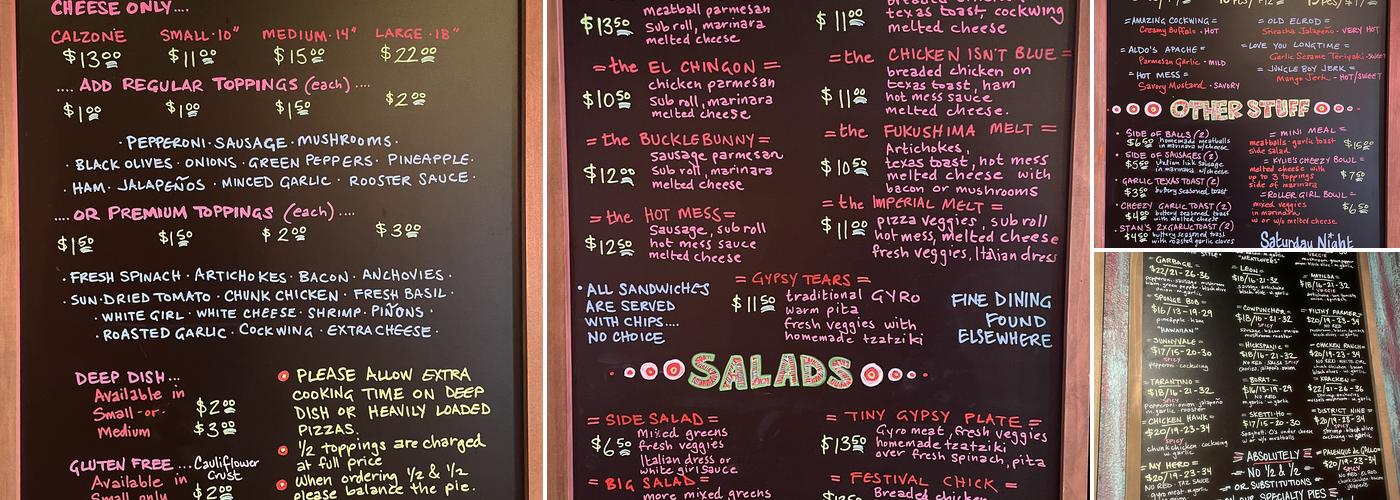 CHEESE ONLY....
CALZONE SMALL·10" MEDIUM·14" LARGE·18"
$13⁰⁰ $11⁰⁰ $15⁰⁰ $22⁰⁰
.... ADD REGULAR TOPPINGS (each) ....
$1⁰⁰ $1⁰⁰ $1⁵⁰ $2⁰⁰
· PEPPERONI · SAUSAGE · MUSHROOMS ·
· BLACK OLIVES · ONIONS · GREEN PEPPERS · PINEAPPLE ·
· HAM · JALAPEÑOS · MINCED GARLIC · ROOSTER SAUCE ·
.... OR PREMIUM TOPPINGS (each) ....
$1⁵⁰ $1⁵⁰ $2⁰⁰ $3⁰⁰
· FRESH SPINACH · ARTICHOKES · BACON · ANCHOVIES ·
· SUN·DRIED TOMATO · CHUNK CHICKEN · FRESH BASIL ·
· WHITE GIRL · WHITE CHEESE · SHRIMP · PIÑONS ·
· ROASTED GARLIC · COCKWING · EXTRA CHEESE ·
DEEP DISH...
Available in
Small -or- $2⁰⁰
Medium $3⁰⁰
GLUTEN FREE... Cauliflower
Crust
Available in
Small only $2⁰⁰
PLEASE ALLOW EXTRA
COOKING TIME ON DEEP
DISH OR HEAVILY LOADED
PIZZAS.
1/2 toppings are charged
at full price
When ordering 1/2 & 1/2
please balance the pie.
$13⁵⁰ meatball parmesan
Sub roll, marinara
melted cheese
=the EL CHINGON =
chicken parmesan
$10⁵⁰ Sub roll, marinara
melted cheese
=the BUCKLEBUNNY =
sausage parmesan
$12⁰⁰ Sub roll, marinara
melted cheese
=the HOT MESS=
Sausage, sub roll
$12⁵⁰ hot mess sauce
melted cheese
$11⁰⁰ texas toast, cockwing
melted cheese
=the CHICKEN ISN'T BLUE =
breaded chicken on
$11⁰⁰ texas toast, ham
hot mess sauce
melted cheese.
=the FUKUSHIMA MELT =
Artichokes,
$10⁵⁰ texas toast, hot mess
melted cheese with
bacon or mushrooms
=the IMPERIAL MELT =
pizza veggies, sub roll
$11⁰⁰ hot mess, melted cheese
fresh veggies, Italian dress
= GYPSY TEARS =
$11⁵⁰ traditional GYRO
warm pita
fresh veggies with
homemade tzatziki
· ALL SANDWICHES
ARE SERVED
WITH CHIPS....
NO CHOICE
FINE DINING
FOUND
ELSEWHERE
SALADS
= SIDE SALAD =
Mixed greens
$6⁵⁰ fresh veggies
Italian dress or
white girl sauce
= BIG SALAD =
more mixed greens
= TINY GYPSY PLATE =
Gyro meat, fresh veggies
$13⁵⁰ homemade tzatziki
over fresh spinach, pita
= FESTIVAL CHICK =
Breaded chicken
=AMAZING COCKWING =
Creamy Buffalo · HOT
= ALDO'S APACHE =
Parmesan Garlic · MILD
= HOT MESS =
Savory Mustard · SAVORY
= OLD ELROD =
Sriracha Jalapeño · VERY HOT
=LOVE YOU LONGTIME =
Garlic Sesame Teriyaki · sweet
= JUNGLE BOY JERK =
Mango Jerk · HOT/SWEET
OTHER STUFF
· SIDE OF BALLS (2)
$6⁵⁰ homemade meatballs
in marinara w/cheese
· SIDE OF SAUSAGES (2)
$5⁵⁰ italian link sausage
in marinara w/cheese
· GARLIC TEXAS TOAST (2)
$3⁵⁰ buttery seasoned toast
· CHEEZY GARLIC TOAST (2)
$4⁰⁰ buttery seasoned toast
with melted cheese
· STAN'S 2XGARLIC TOAST (2)
$4⁵⁰ buttery seasoned toast
with roasted garlic cloves
= MINI MEAL =
meatballs · garlic toast
side salad
= KYLIE'S CHEEZY BOWL =
melted cheese with
up to 3 toppings $7⁵⁰
side of marinara
=ROLLER GIRL BOWL =
mixed veggies
in marinara $6⁵⁰
w or w/o melted cheese
Saturday Night
= GARBAGE =
$22/21-26-36
= SPONGE BOB =
$16/13-19-29
pineapple · ham
"HAWAIIAN"
= SUNNYVALE =
$17/15-20-30
SPICY
pepperoni · cockwing
= TARANTINO =
$18/16-21-32
SPICY
= CHICKEN HAWK =
$20/19-23-34
SPICY
chunk chicken · cockwing
= MY HERO =
$20/19-23-34
= LEON =
$18/16-21-32
= COWPUNCHER =
$18/16-21-32
SPICY
= HICKSPANIC =
$18/16-21-32
= BORAT =
$16/13-19-29
NO RED
= SKETTI·HO =
$17/15-20-30
= ABSOLUTELY =
- NO 1/2 & 1/2 -
- OR SUBSTITUTIONS -
= MATILDA =
$18/16-21-32
= FILTHY FARMER =
$20/19-23-34
= CHICKEN RANCH =
$20/19-23-34
= KRACKEN =
$22/21-26-36
= DISTRICT NINE =
$20/19-23-34
= PALENQUE de GALLO =
$20/19-23-34